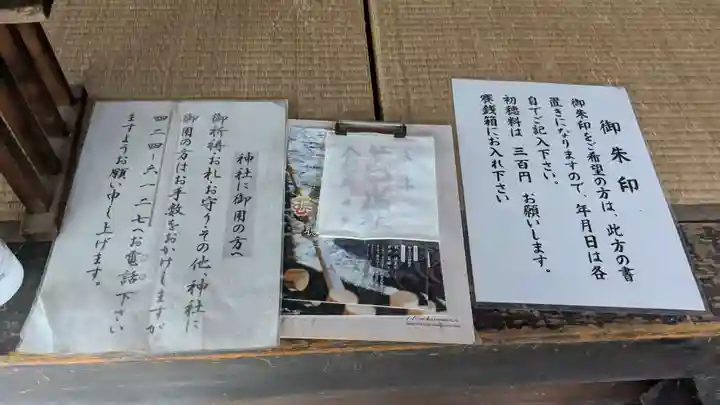 御朱印
御朱印をご希望の方は、此方の書
置きになりますので、年月日は各
自でご記入下さい。
初穂料は 三百円 お願いします。
賽銭箱にお入れ下さい
神社に御用の方へ
御祈祷・お札・お守り・その他、神社に
御用の方はお手数をおかけしますが
四二四-六一二七へお電話下さい
ますようお願い申し上げます。